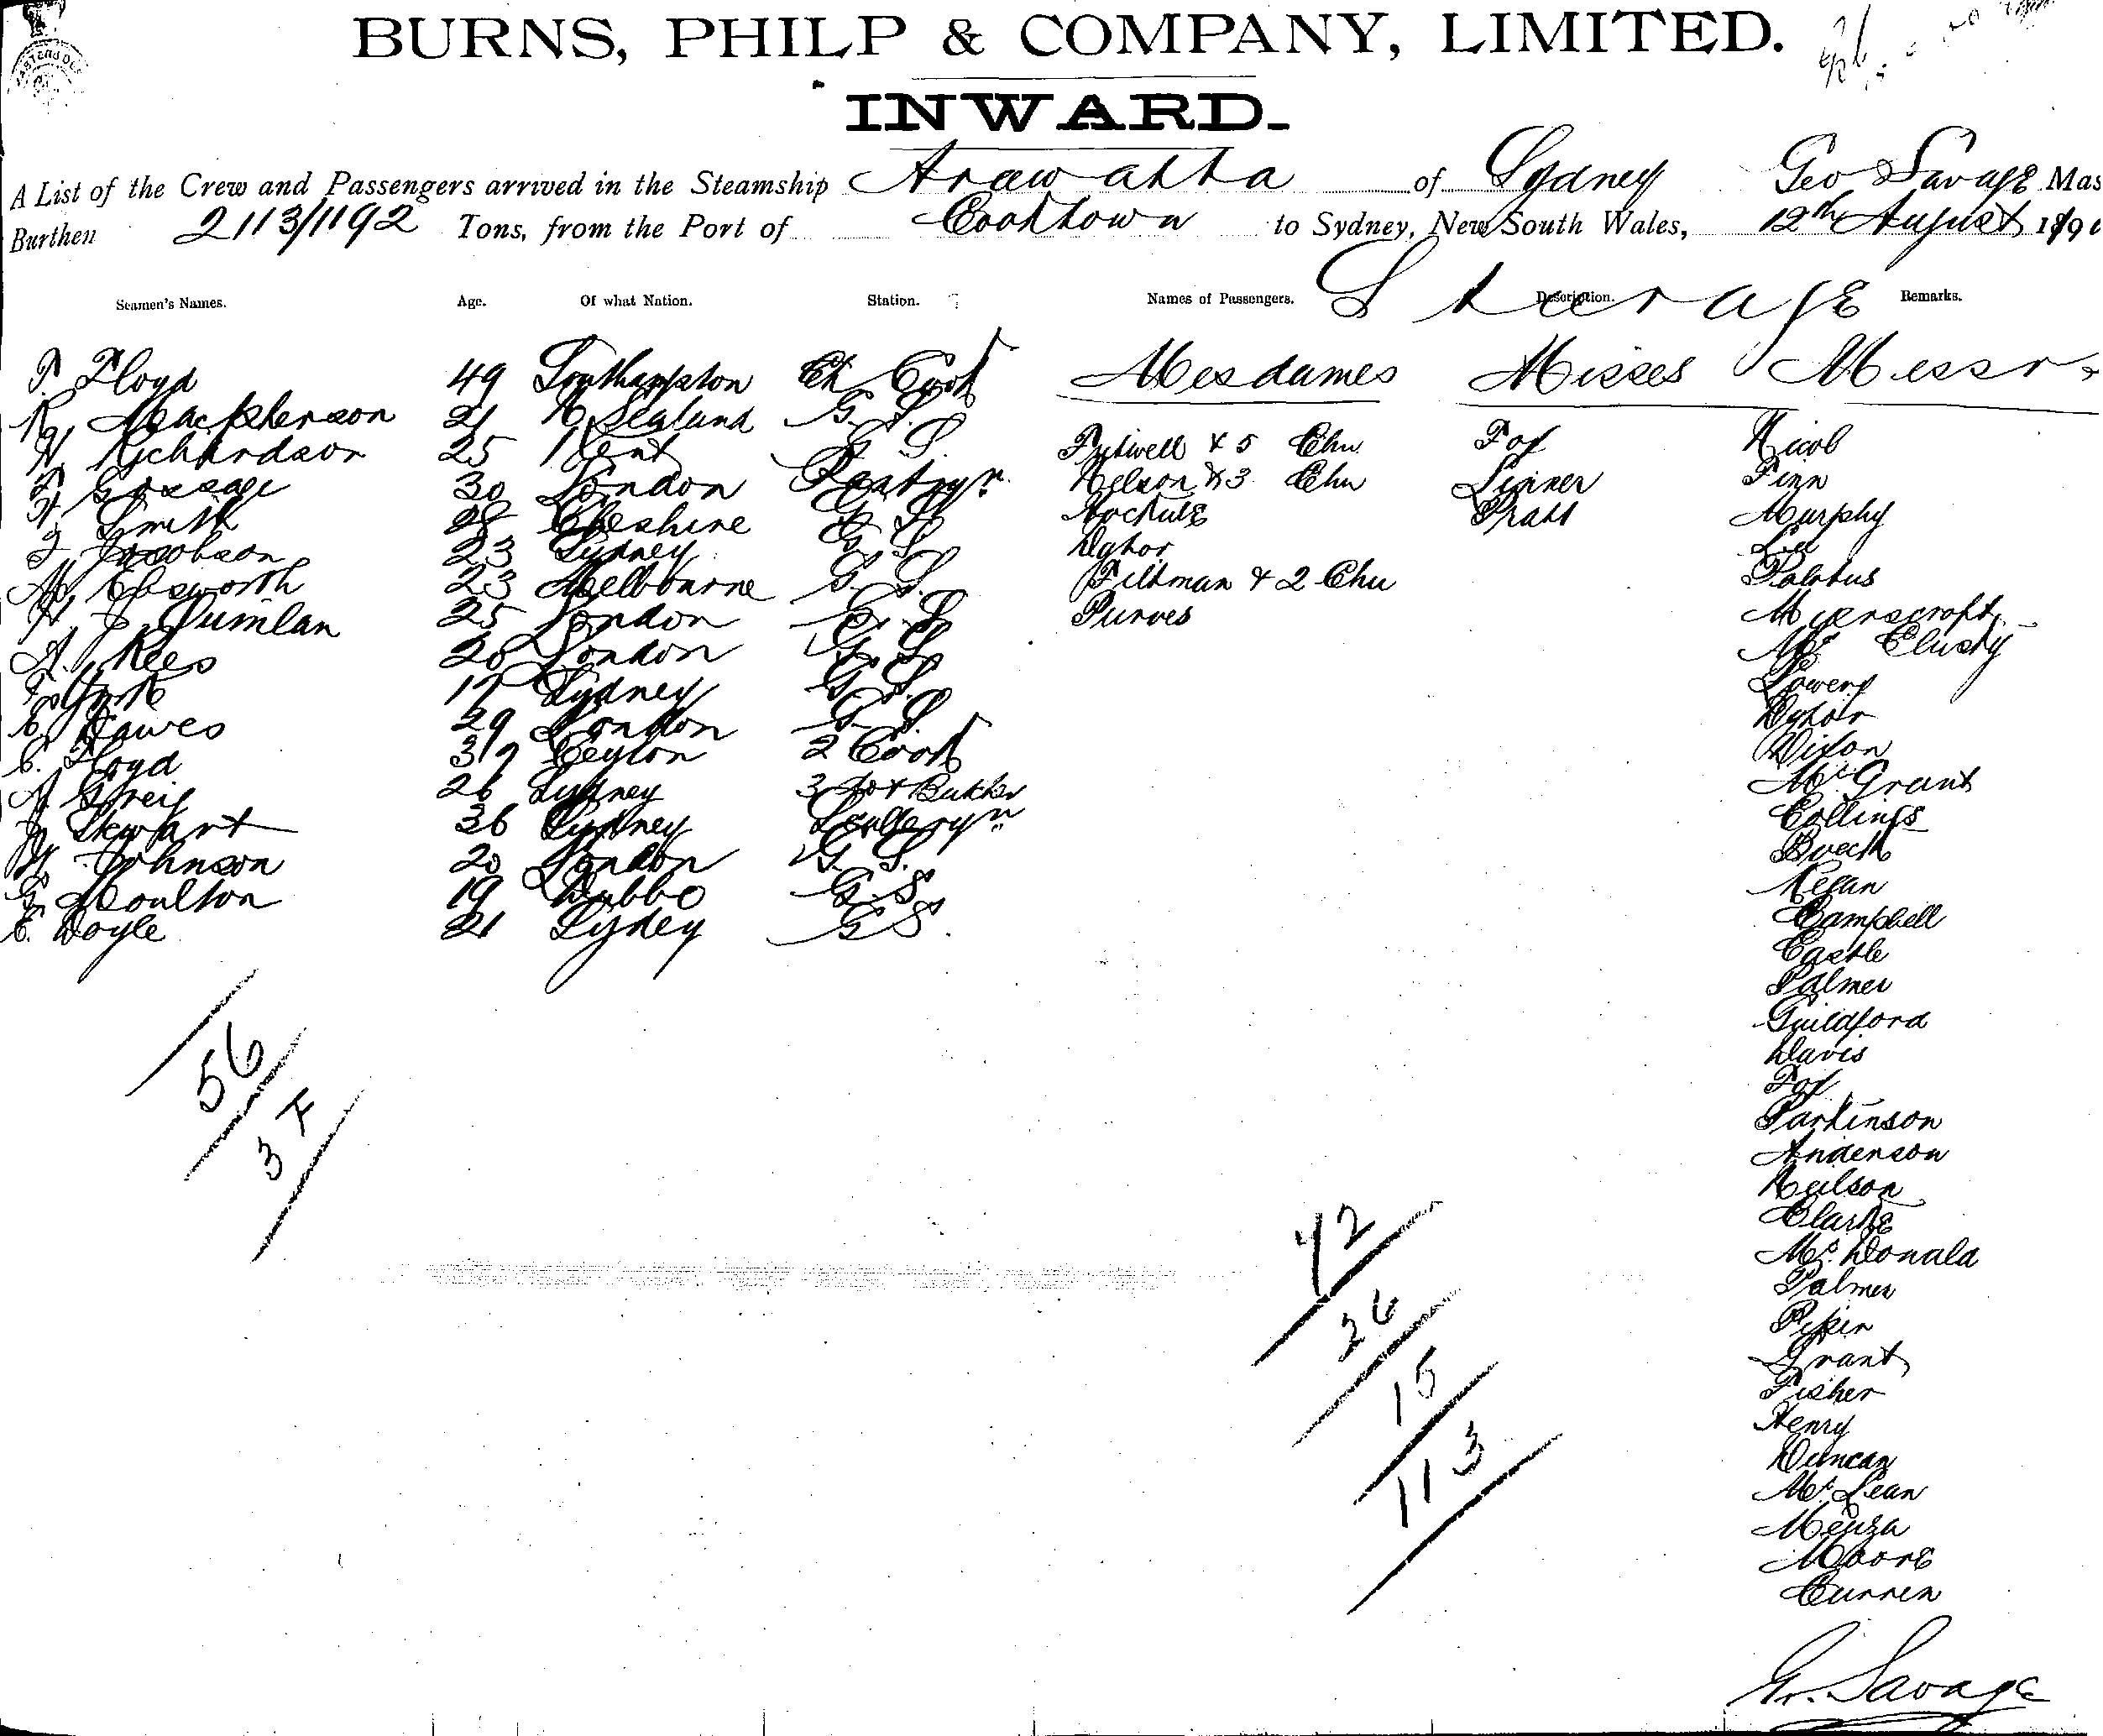 BURNS, PHILP & COMPANY, LIMITED.
INWARD.
A List of the Crew and Passengers arrived in the Steamship Arawatta of Sydney Geo Savage Mas
Burthen 2113/1192 Tons, from the Port of Cooktown to Sydney, New South Wales, 12th August 189
Seamen's Names. Age. Of what Nation. Station. Names of Passengers. Description. Remarks.
Steerage
Mesdames Misses Messrs
F Floyd 49 Southampton Ch Cook
R Mackpherson 21 N Zealand G. S.
H Richardson 25 Kent G S. Futwell & 5 Chn Fox Nicol
F Gossage 30 London Pantryn. Nelson & 3 Chn Linner Finn
H Smith 28 Cheshire G S Pratt Murphy
J Jacobson 23 Sydney G S Dyhor Lee
M Ebsworth 23 Melbourne G. S. Feltman & 2 Chn
H J Quinlan 25 London G. S Purves
A. Rees 20 London G. S Mc Elusky
F York 17 Sydney G S. Lowery
C Hawes 29 London G. S. Dyhor
C. Floyd 37 Ceylon 2 Cook Dixon
A Greig 26 Sydney 3 do & Butcher McGrant
J Stewart 36 Sydney Sculleryn Collings
W Johnson 20 London G. S.
G Moulton 19 Dubbo G S Kegan
C. Doyle 21 Sydney G S Campbell
Castle
Palmer
Guildford
Davis
Fox
Parkinson
Anderson
Neilson
Clarke
Mc. Donald
Palmer
Pepin
Grant
Fisher
Henry
Duncan
Mc Lean
Menza
Moore
Curren
56
3 F
42
36
15
113
Gr. Savage